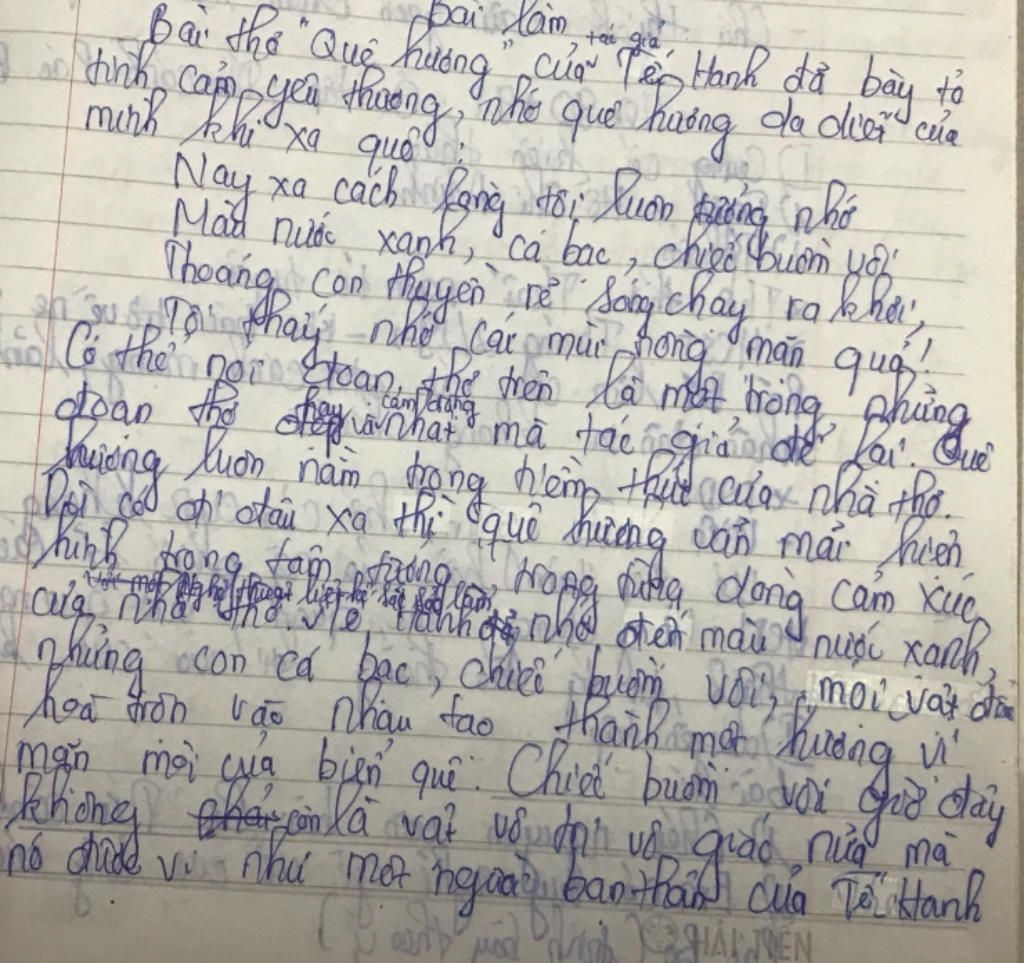 Bài làm
Bài thơ "Quê hương" của tác giả Tế Hanh đã bày tỏ
tình cảm yêu thương, nhớ quê hương da diết của
mình khi xa quê :
Nay xa cách lòng tôi luôn tưởng nhớ
Màu nước xanh, cá bạc, chiếc buồm vôi
Thoáng con thuyền rẽ sóng chạy ra khơi,
Tôi thấy nhớ cái mùi nồng mặn quá!
Có thể nói đoạn thơ trên là một trong những
đoạn thơ hay và cảm động nhất mà tác giả để lại. Quê
hương luôn nằm trong tiềm thức của nhà thơ.
Dù có đi đâu xa thì quê hương vẫn mãi hiện
hình trong tâm tưởng, trong từng dòng cảm xúc
của nhà thơ. Tế Hanh nhớ đến màu nước xanh,
những con cá bạc, chiếc buồm vôi, mọi vật đều
hoà trộn vào nhau tạo thành một hương vị
mặn mòi của biển quê. Chiếc buồm vôi giờ đây
không còn là vật vô tri vô giác nữa mà
nó được ví như một người bạn thân của Tế Hanh
HẢI TIẾN